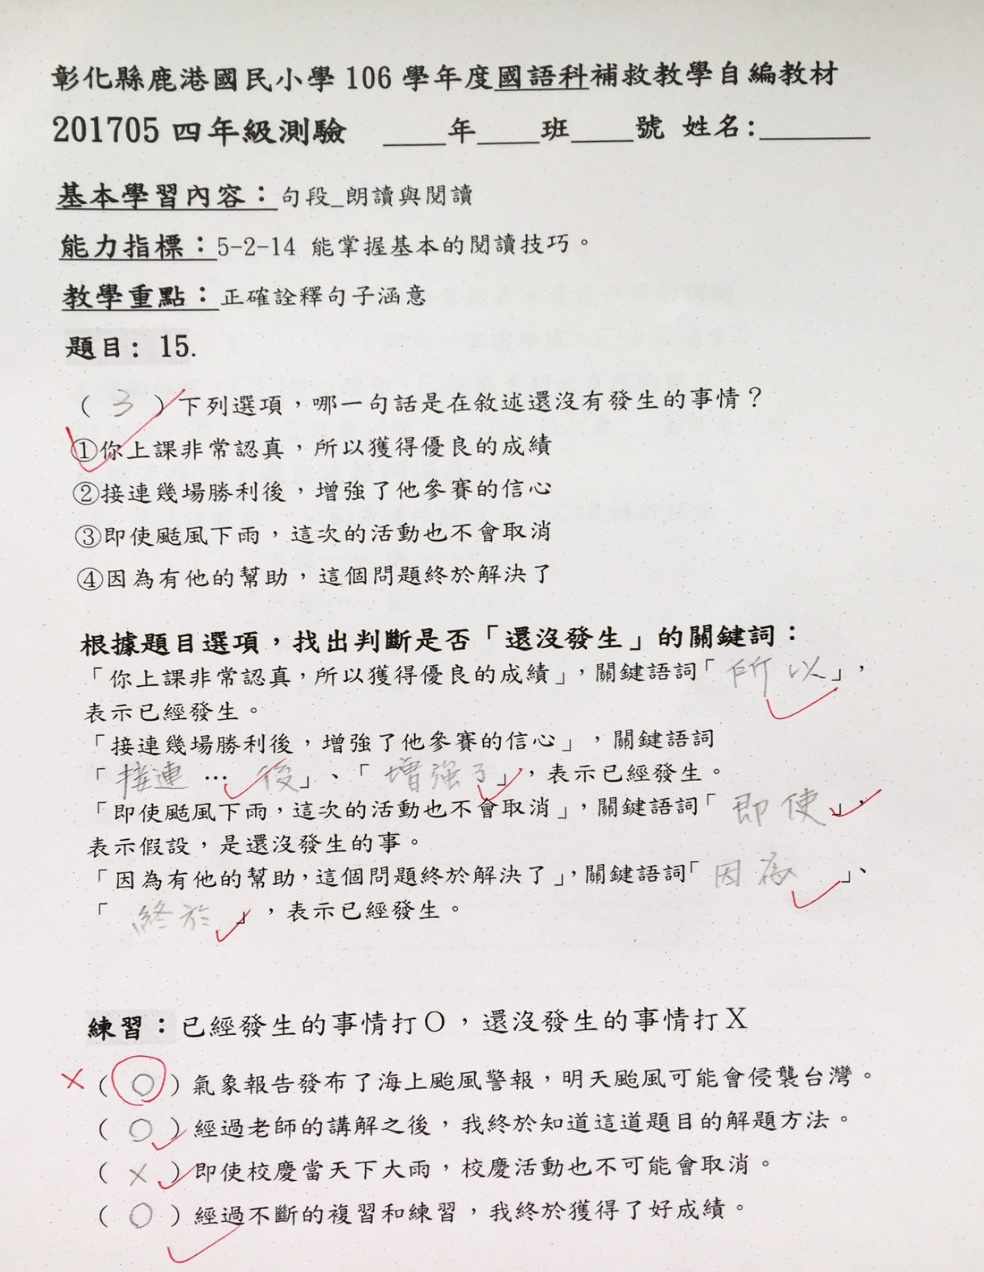 彰化縣鹿港國民小學106學年度國語科補救教學自編教材
201705四年級測驗 ____年____班____號 姓名:_______
基本學習內容：句段_朗讀與閱讀
能力指標：5-2-14 能掌握基本的閱讀技巧。
教學重點：正確詮釋句子涵意
題目: 15.
( 3 )下列選項，哪一句話是在敘述還沒有發生的事情？
①你上課非常認真，所以獲得優良的成績
②接連幾場勝利後，增強了他參賽的信心
③即使颳風下雨，這次的活動也不會取消
④因為有他的幫助，這個問題終於解決了
根據題目選項，找出判斷是否「還沒發生」的關鍵詞：
「你上課非常認真，所以獲得優良的成績」，關鍵語詞「所以」，
表示已經發生。
「接連幾場勝利後，增強了他參賽的信心」，關鍵語詞
「接連…後」、「增強了」，表示已經發生。
「即使颳風下雨，這次的活動也不會取消」，關鍵語詞「即使」，
表示假設，是還沒發生的事。
「因為有他的幫助，這個問題終於解決了」，關鍵語詞「因為」、
「終於」，表示已經發生。
練習：已經發生的事情打O，還沒發生的事情打X
( O )氣象報告發布了海上颱風警報，明天颱風可能會侵襲台灣。
( O )經過老師的講解之後，我終於知道這道題目的解題方法。
( X )即使校慶當天下大雨，校慶活動也不可能會取消。
( O )經過不斷的複習和練習，我終於獲得了好成績。